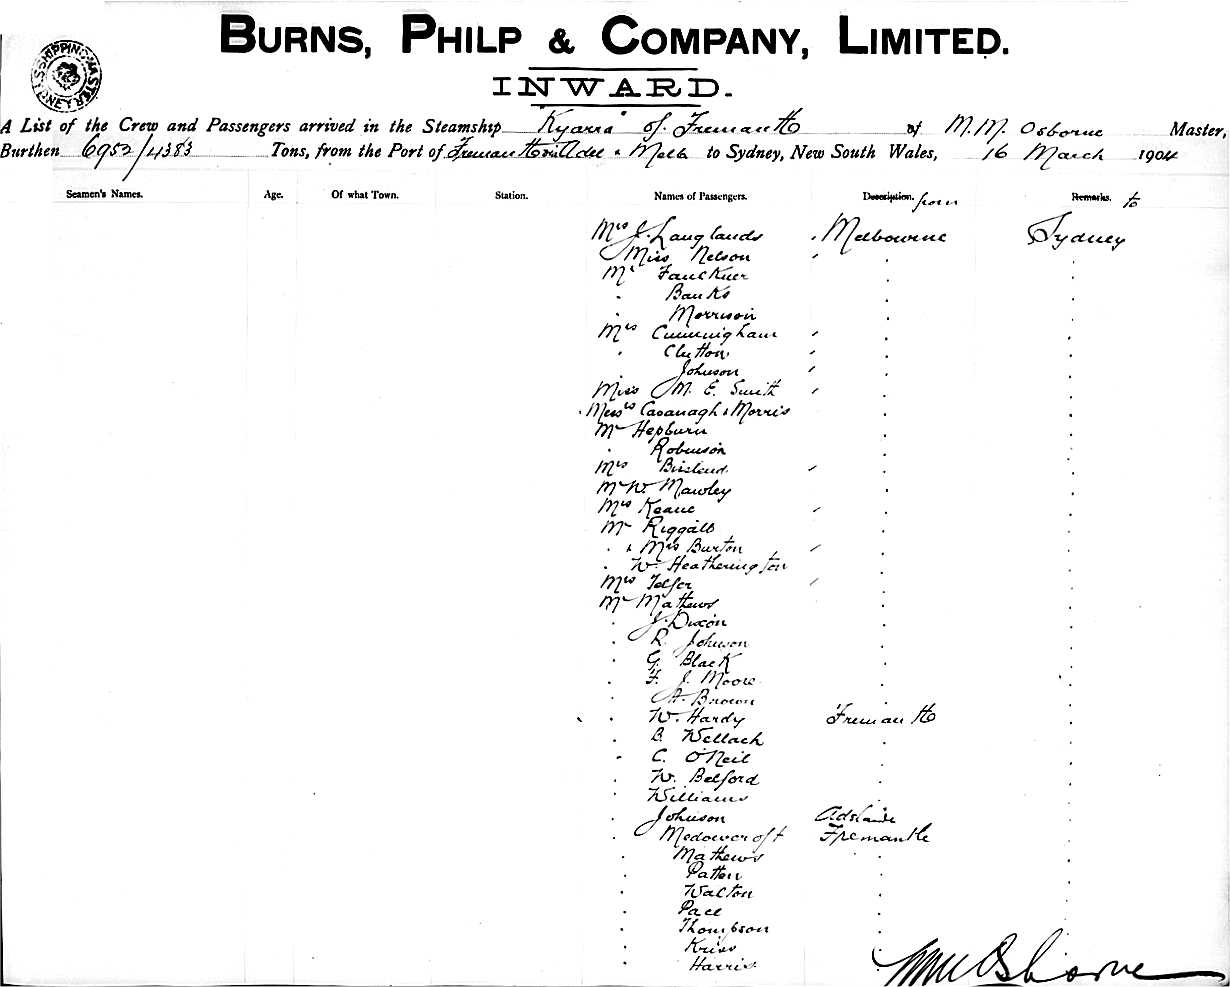 BURNS, PHILP & COMPANY, LIMITED.
INWARD.
SHIPPING MASTER
A List of the Crew and Passengers arrived in the Steamship Kyarra of Fremantle of M.M. Osborne Master,
Burthen 6952/4383 Tons, from the Port of Fremantle via Adel & Melb to Sydney, New South Wales, 16 March 1904
Seamen's Names. Age. Of what Town. Station. Names of Passengers. Description. from Remarks. to
Mrs J. Langlands Melbourne Sydney
Miss Nelson
Mr Faulkner
" Banks
Morrison
Mrs Cunningham
" Clutton
Johnson
Miss M. E. Smith
Messrs Cavanagh & Morris
Mr Hepburn
" Robinson
Mrs
Mr W. Mawley
Mrs Keane
Mr Riggall
" & Mrs Burton
" W. Heatherington
Mrs Telfer
Mr Mathews
" J. Dixon
" R. Johnson
" G. Black
" F. J. Moore
" A. Brown
" W. Hardy Fremantle
" B. Wellach
" C. O'Neil
" W. Belford
" Williams
" Johnson Adelaide
" Medowcroft Fremantle
" Mathews
" Patten
" Walton
" Pace
" Thompson
" Kriss
" Harris
MM Osborne